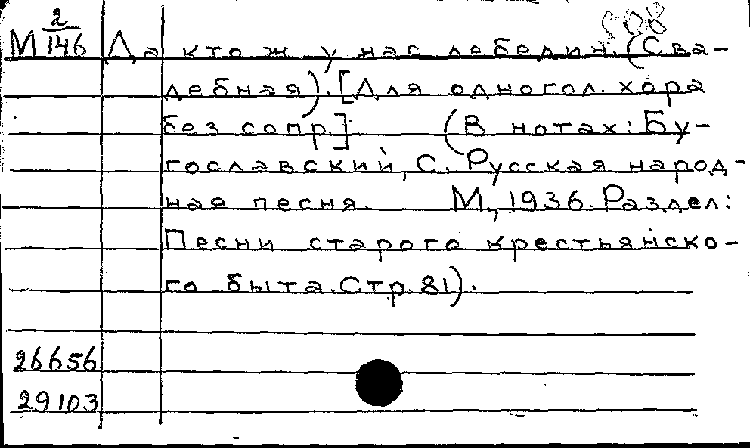 М 2/146 Да кто ж у нас лебедин. (Сва-
дебная). [Для одногол. хора
без сопр.] (В нотах: Бу-
гославский, С. Русская народ-
ная песня. М., 1936. Раздел:
Песни старого крестьянско-
го быта. Стр. 81).
26656
29103